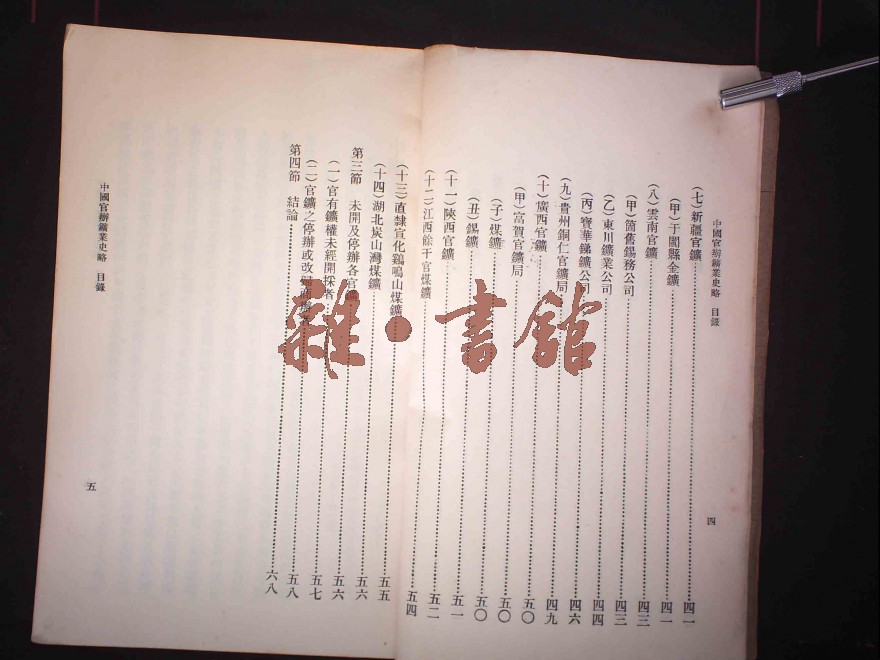 中國官辦鑛業史略 目錄
(七)新疆官鑛……四一
(甲)于闐縣金鑛……四一
(八)雲南官鑛……四三
(甲)箇舊錫務公司……四三
(乙)東川鑛業公司……四四
(丙)寶華銻鑛公司……四六
(九)貴州銅仁官鑛局……四九
(十)廣西官鑛……五〇
(甲)富賀官鑛局……五〇
(子)煤鑛……五〇
(丑)錫鑛……五一
(十一)陝西官鑛……五二
(十二)江西餘干官煤鑛……五四
四
(十三)直隸宣化鷄鳴山煤鑛……五五
(十四)湖北炭山灣煤鑛……五六
第三節 未開及停辦各官鑛……五六
(一)官有鑛權未經開採者……五七
(二)官鑛之停辦或改歸商辦者……五八
第四節 結論……六八
中國官辦鑛業史略 目錄
五
雜·書館